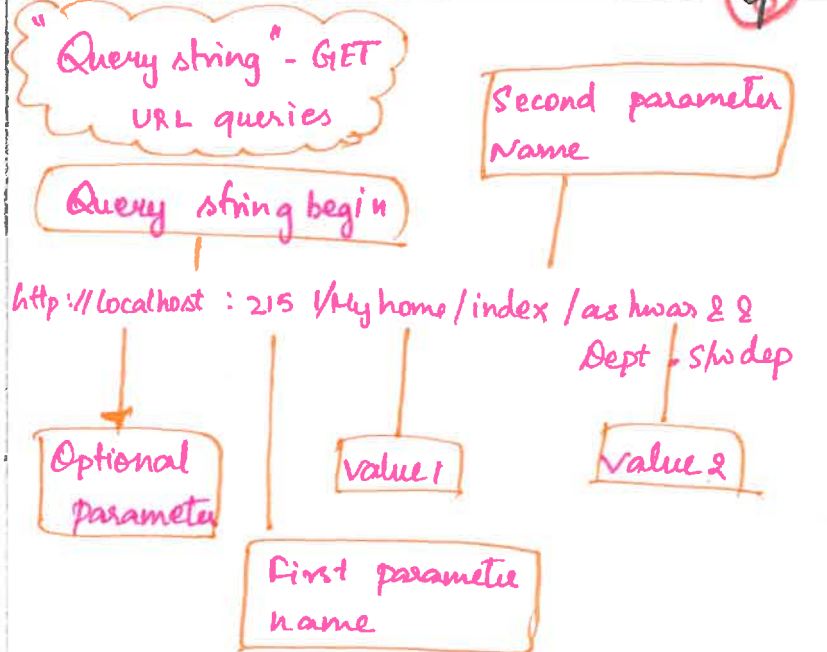 "Query string" - GET
URL queries
Second parameter
Name
Query string begin
http://localhost : 215 1/My home / index / as hwar & &
Dept - Sho dep
Optional
parameter
value 1
value 2
First parameter
name